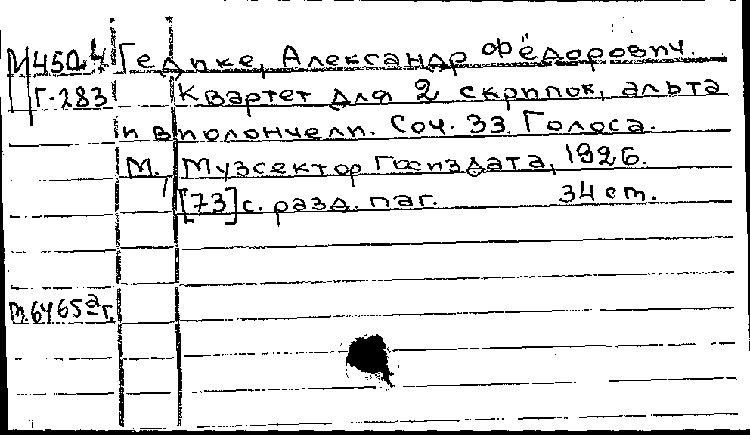 М450.4 Гедике, Александр Фёдорович.
Г-283 Квартет для 2 скрипок, альта
и виолончели. Соч. 33. Голоса.
М., Музсектор Госиздата, 1926.
[73] с. разд. паг. 34 ст.